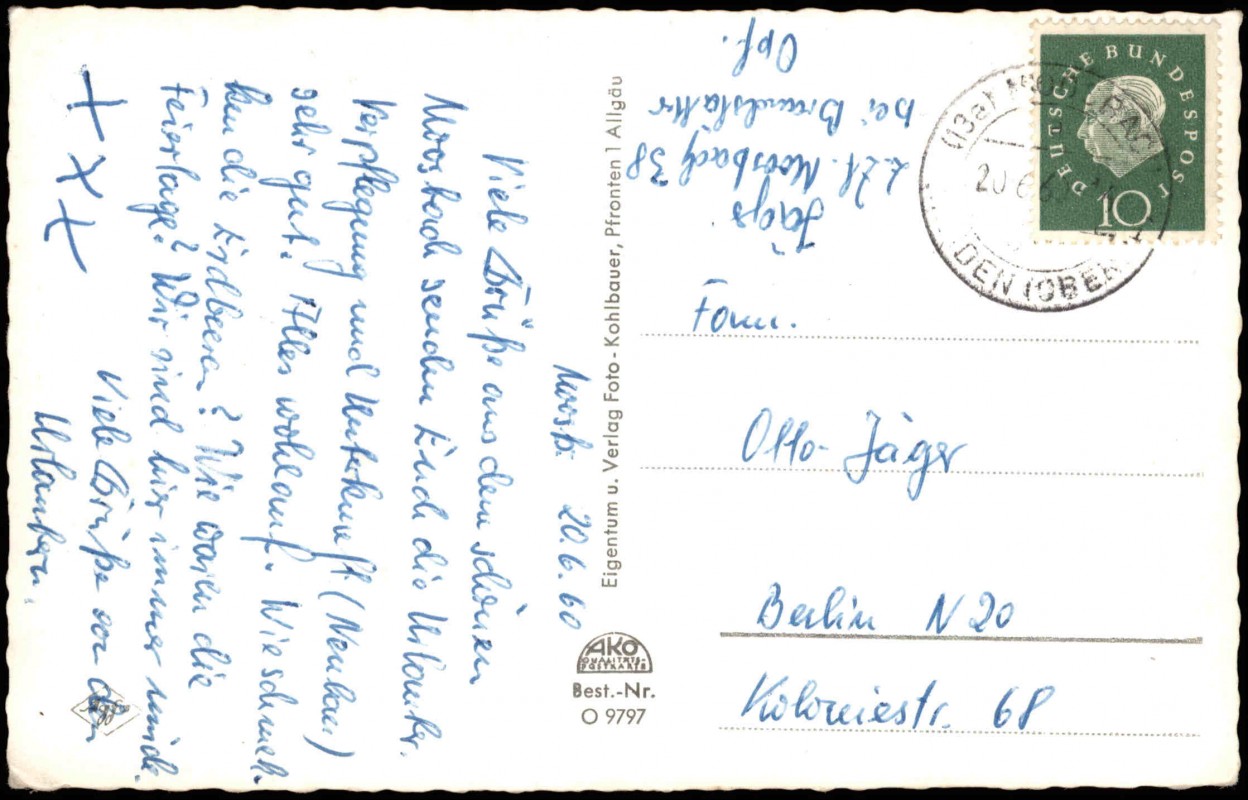 Moosb. 20.6.60
Viele Grüße aus dem schönen
Moosbach senden Euch die Urlauber.
Verpflegung und Unterkunft (Neubau)
sehr gut. Alles wohlauf. Wie schmek-
ken die Erdbeeren? Wie waren die
Feiertage? Wir sind hier immer müde.
Viele Grüße von den
Urlaubern.
+ x x
Eigentum u. Verlag Foto - Kohlbauer, Pfronten | Allgäu
z.Zt. Moosbach 38
bei
Opf.
DEUTSCHE BUNDESPOST
10
(13a) MOOSBACH
20.6.60
DEN (OBER
Fam.
Otto Jäger
Berlin N 20
Koloniestr. 68
AKO
QUALITÄTS-
POSTKARTE
Best.-Nr.
O 9797
Agfa